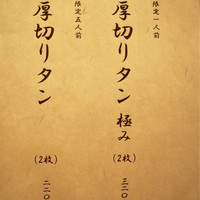 限定一人前
厚切りタン 極み
(2枚)
三二〇
限定五人前
厚切りタン
(2枚)
二二〇